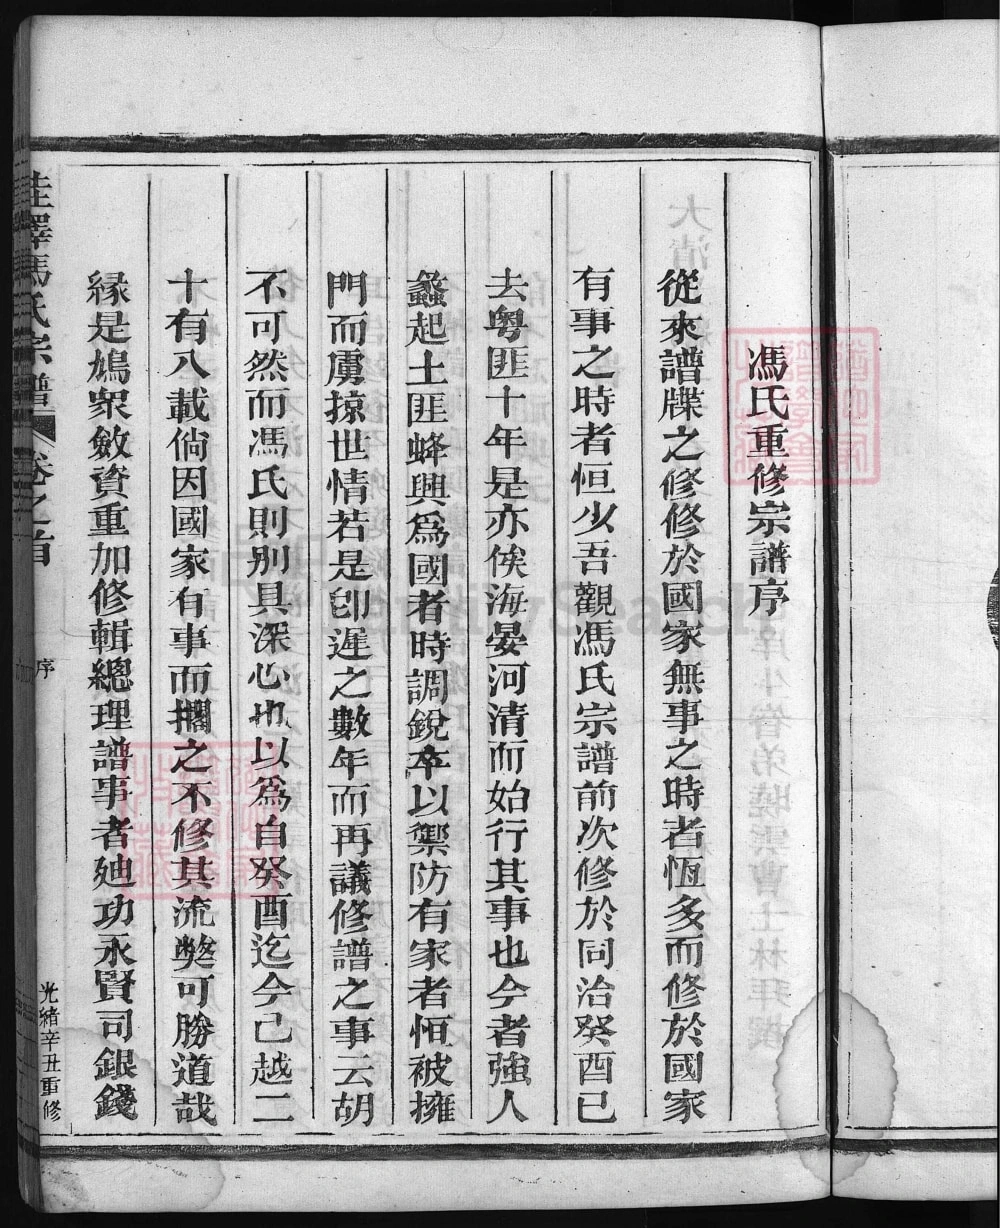 馮氏重修宗譜序
從來譜牒之修修於國家無事之時者恆多而修於國家
有事之時者恒少吾觀馮氏宗譜前次修於同治癸酉已
去粵匪十年是亦俟海晏河清而始行其事也今者強人
蠡起土匪蜂興爲國者時調銳卒以禦防有家者恒被擁
門而虜掠世情若是卽遲之數年而再議修譜之事云胡
不可然而馮氏則別具深心也以爲自癸酉迄今已越二
十有八載倘因國家有事而擱之不修其流弊可勝道哉
緣是鳩衆斂資重加修輯總理譜事者廸功永賢司銀錢
馮氏宗譜
卷之首
序
光緒辛丑重修
FamilySearch